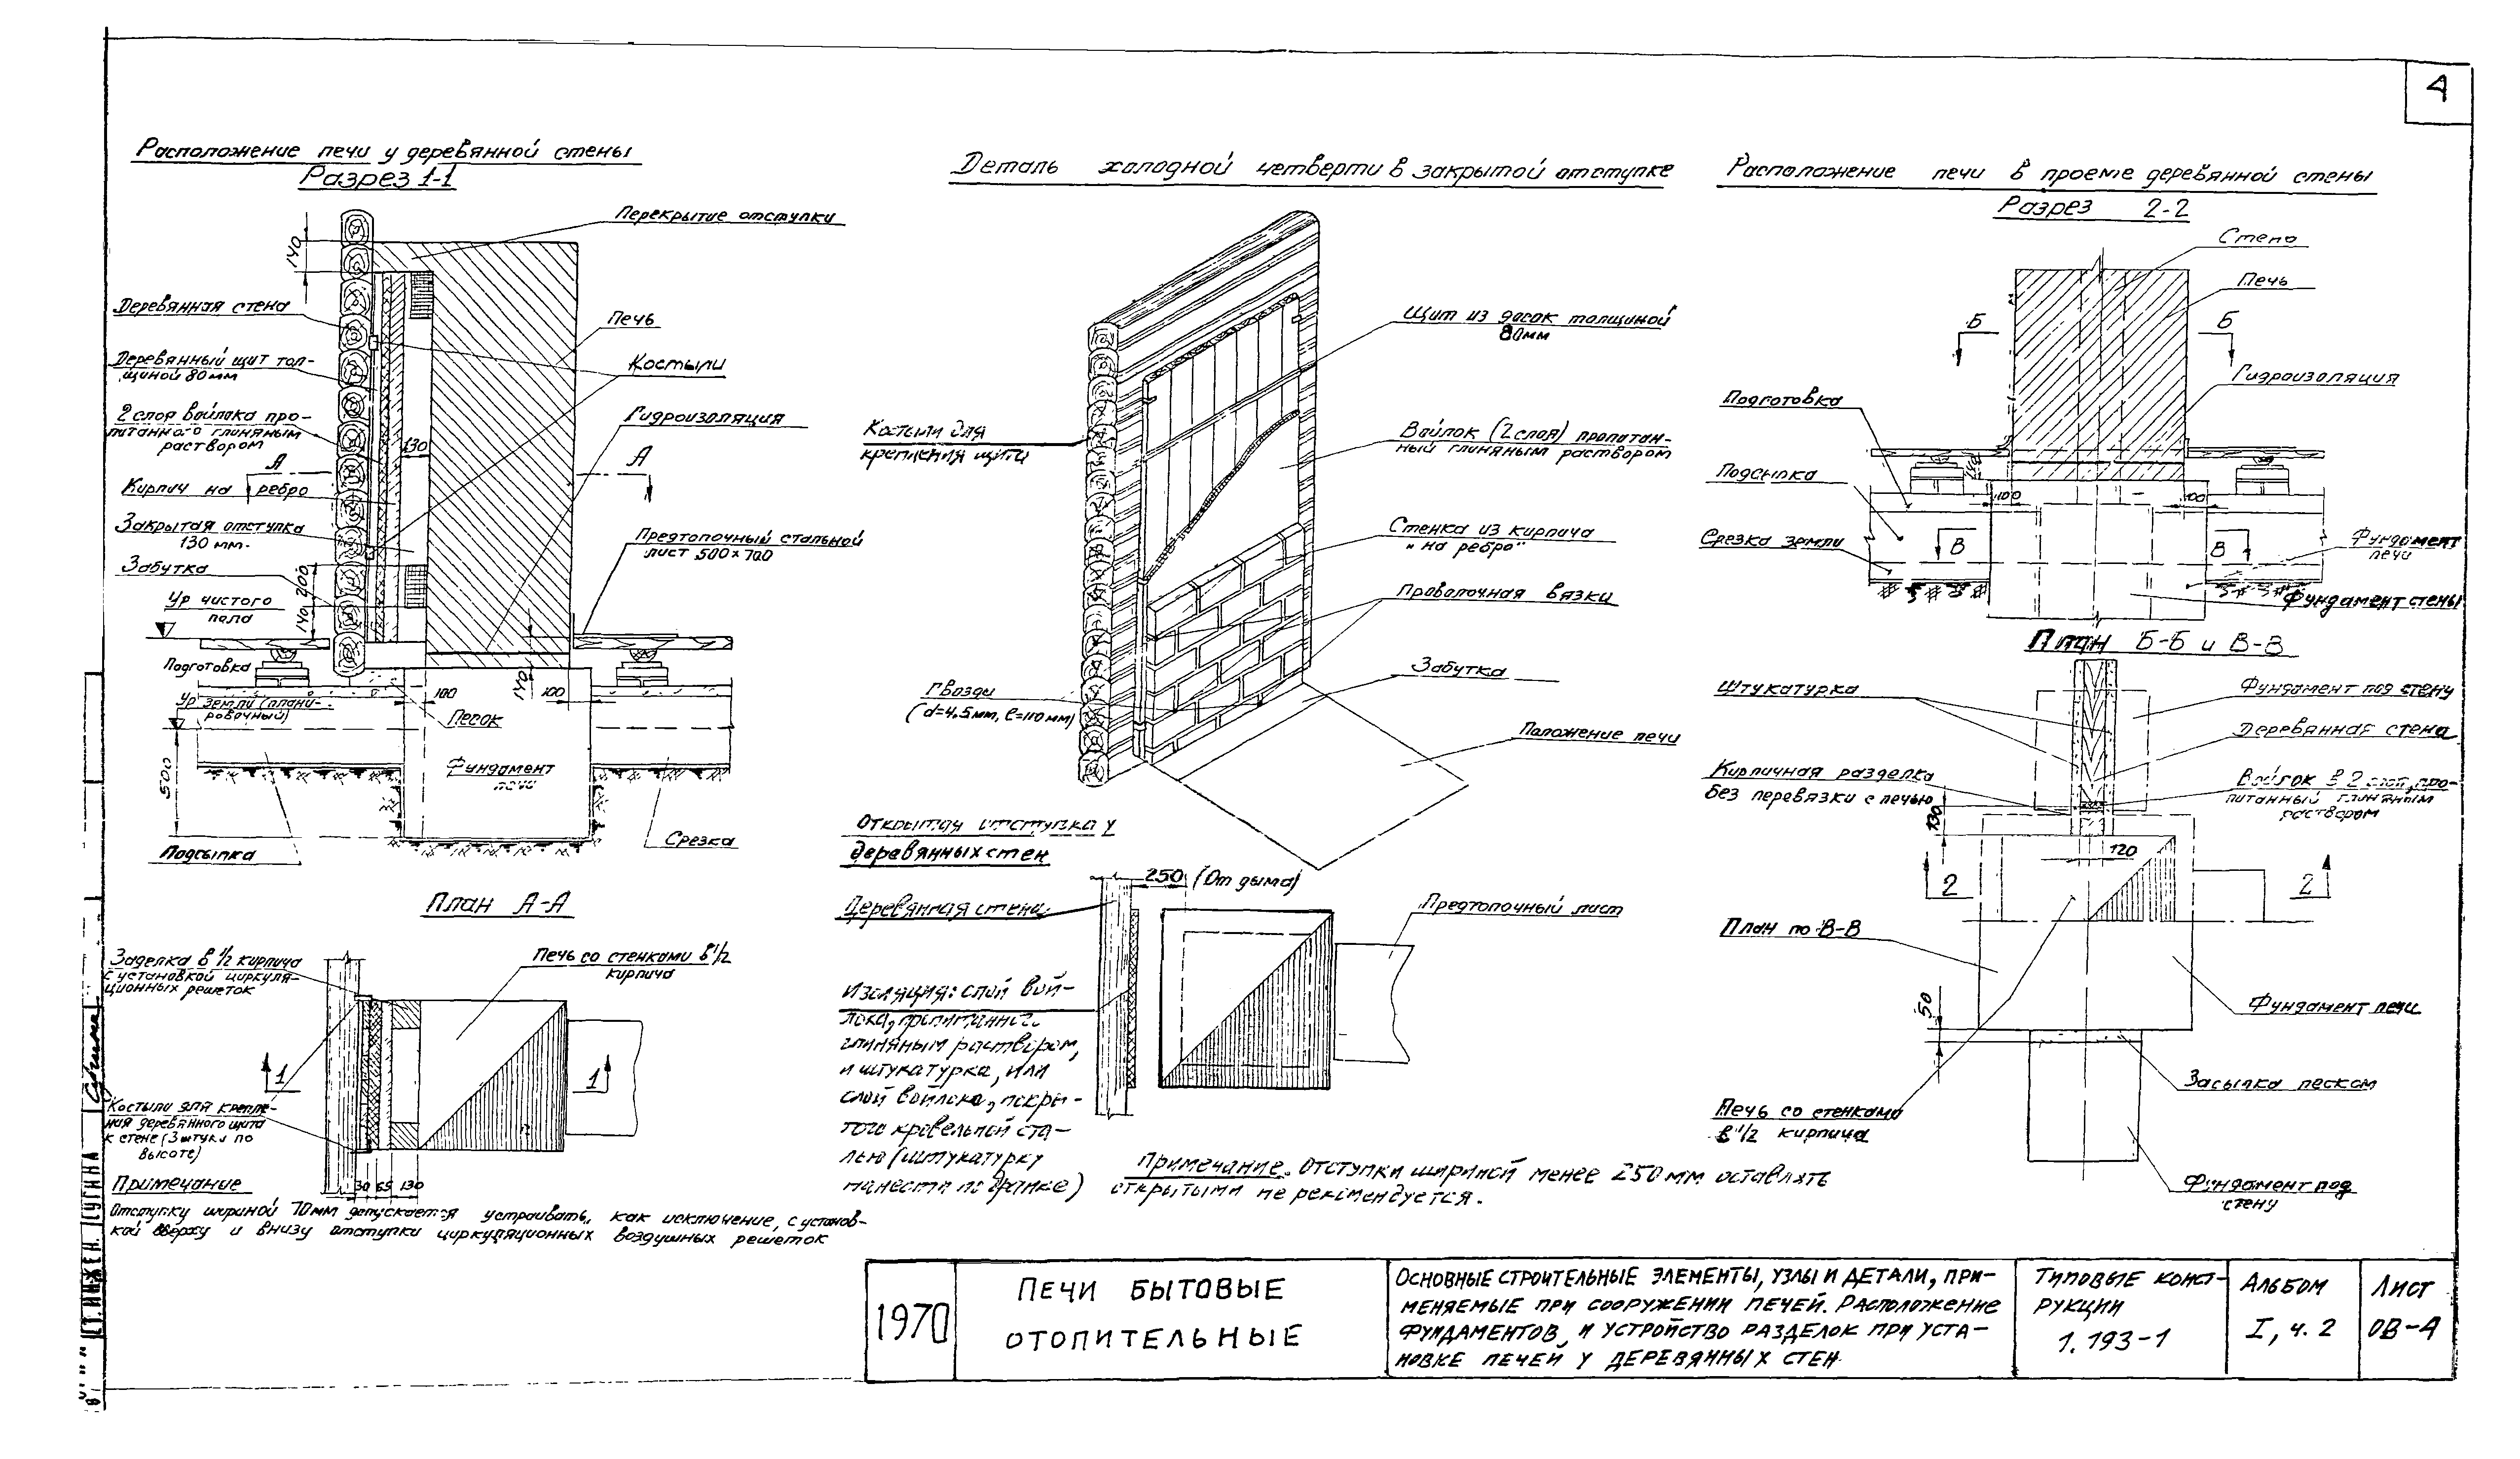 4
Расположение печи у деревянной стены
Разрез 1-1
Перекрытие отступки
140
Деревянная стена
Печь
Деревянный щит тол-
щиной 80мм
Костыли
2 слоя войлока про-
питанного глиняным
раствором
Гидроизоляция
130
А
А
Кирпич на ребро
Закрытая отступка
130 мм.
Предтопочный стальной
лист 500×700
Забутка
200
140
Ур чистого
пола
Подготовка
100
140
100
Ур земли (плани-
ровочный)
Песок
500
Фундамент
печи
Подсыпка
Срезка
План А-А
Заделка в 1/2 кирпича
с установкой циркуля-
ционных решеток
Печь со стенками в 1/2
кирпича
1
1
Костыли для крепле-
ния деревянного щита
к стене (3 штуки по
высоте)
30 65 130
Примечание
Отступку шириной 70мм допускается устраивать, как исключение, с установ-
кой вверху и внизу отступки циркуляционных воздушных решеток
Деталь холодной четверти в закрытой отступке
Щит из досок толщиной
80мм
Костыли для
крепления щита
Войлок (2 слоя) пропитан-
ный глиняным раствором
Стенка из кирпича
"на ребро"
Проволочная вязки
Забутка
Гвозди
(d=4.5мм, ℓ=110мм)
Положение печи
Открытая отступка у
деревянных стен
250 (От дыма)
Деревянная стена
Предтопочный лист
Изоляция: слой вой-
лока, пропитанного
глиняным раствором,
и штукатурка, или
слой войлока, покры-
того кровельной ста-
лью (штукатурку
нанести по дранке)
Примечание. Отступки шириной менее 250мм оставлять
открытыми не рекомендуется.
Расположение печи в проеме деревянной стены
Разрез 2-2
Стена
Печь
Б
Б
Гидроизоляция
Подготовка
Подсыпка
140
100
100
Срезка земли
В
В
Фундамент
печи
Фундамент стены
План Б-Б и В-В
Штукатурка
Фундамент под стену
Деревянная стена
Кирпичная разделка
без перевязки с печью
Войлок в 2 слоя, про-
питанный глиняным
раствором
130
120
2
2
План по В-В
50
Фундамент печи
Засыпка песком
Печь со стенками
в 1/2 кирпича
Фундамент под
стену
СТ. ИНЖЕН. СУГИНА
1970
ПЕЧИ БЫТОВЫЕ
ОТОПИТЕЛЬНЫЕ
ОСНОВНЫЕ СТРОИТЕЛЬНЫЕ ЭЛЕМЕНТЫ, УЗЛЫ И ДЕТАЛИ, ПРИ-
МЕНЯЕМЫЕ ПРИ СООРУЖЕНИИ ПЕЧЕЙ. РАСПОЛОЖЕНИЕ
ФУНДАМЕНТОВ, И УСТРОЙСТВО РАЗДЕЛОК ПРИ УСТА-
НОВКЕ ПЕЧЕЙ У ДЕРЕВЯННЫХ СТЕН.
ТИПОВЫЕ КОНСТ-
РУКЦИИ
1.193-1
АЛЬБОМ
I, ч. 2
ЛИСТ
ОВ-4